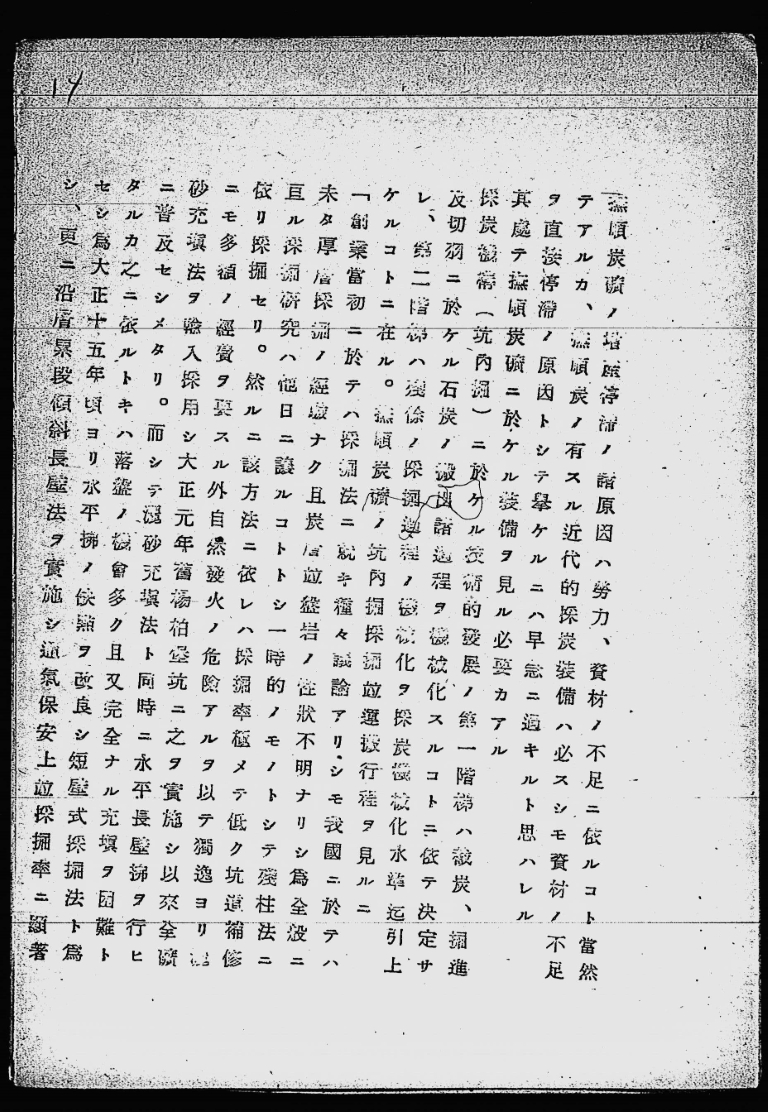 14
撫順炭礦ノ増産停滞ノ諸原因ハ勞力、資材ノ不足ニ依ルコト當然
テアルカ、撫順炭ノ有スル近代的採炭裝備ハ必スシモ資材ノ不足
ヲ直接停滞ノ原因トシテ擧ケルニハ早急ニ過キルト思ハレル
其處テ撫順炭礦ニ於ケル裝備ヲ見ル必要カアル
採炭機構(坑內掘)ニ於ケル技術的發展ノ第一階梯ハ截炭、掘進
及切羽ニ於ケル石炭ノ搬出諸過程ヲ機械化スルコトニ依テ決定サ
レ、第二階梯ハ殘餘ノ採掘過程ノ機械化ヲ採炭機械化水準迄引上
ケルコトニ在ル。撫順炭礦ノ坑內掘採掘竝運搬行程ヲ見ルニ
「創業當初ニ於テハ採掘法ニ就キ種々議論アリシモ我國ニ於テハ
未タ厚層採掘ノ經驗ナク且炭層竝盤岩ノ性狀不明ナリシ爲全般ニ
亘ル採掘硏究ハ他日ニ讓ルコトトシ一時的ノモノトシテ殘柱法ニ
依リ採掘セリ。然ルニ該方法ニ依レハ採掘率極メテ低ク坑道補修
ニモ多額ノ經費ヲ要スル外自然發火ノ危險アルヲ以テ獨逸ヨリ
砂充塡法ヲ輸入採用シ大正元年舊楊柏堡坑ニ之ヲ實施シ以來全礦
ニ普及セシメタリ。而シテ砂充塡法ト同時ニ水平長壁拂ヲ行ヒ
タルカ之ニ依ルトキハ落盤ノ機會多ク且又完全ナル充塡ヲ困難ト
セシ爲大正十五年頃ヨリ水平拂ノ缺點ヲ改良シ短壁式採掘法ト爲
シ、更ニ沿層累段傾斜長壁法ヲ實施シ通氣保安上竝採掘率ニ顯著